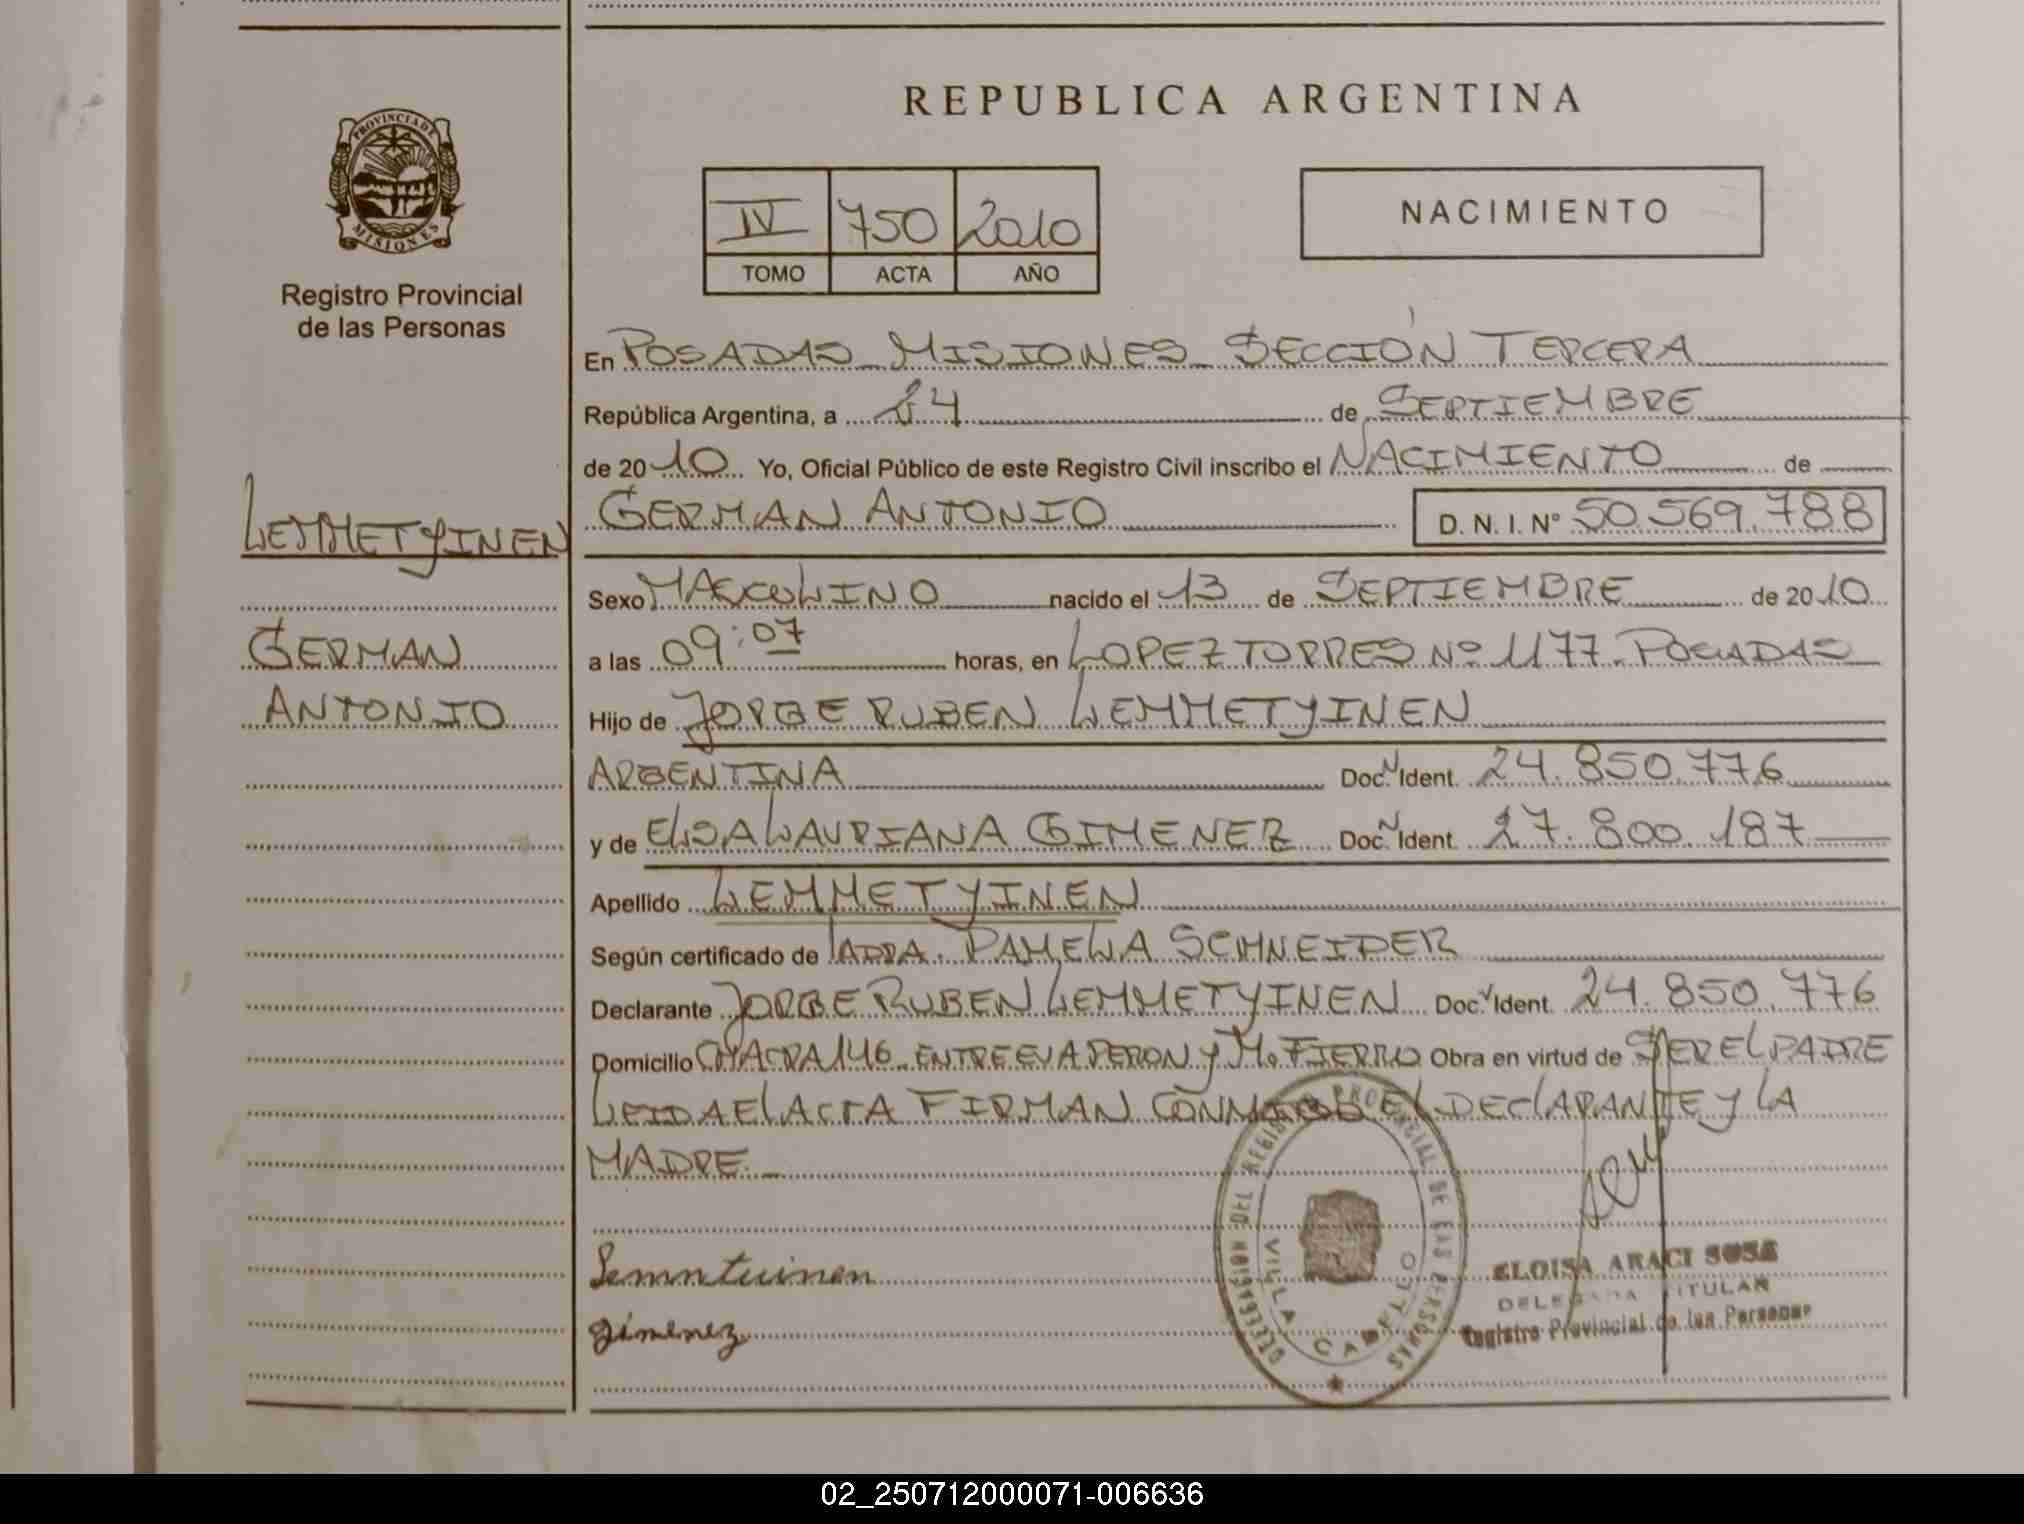 REPUBLICA ARGENTINA
PROVINCIA DE
MISIONES
Registro Provincial
de las Personas
IV 750 2010
TOMO ACTA AÑO
NACIMIENTO
En POSADAS MISIONES SECCIÓN TERCERA
República Argentina, a 24 de SEPTIEMBRE
de 2010 Yo, Oficial Público de este Registro Civil inscribo el NACIMIENTO de
GERMAN ANTONIO D. N. I. Nº 50.569.788
LEMMETYINEN
GERMAN
ANTONIO
Sexo MASCULINO nacido el 13 de SEPTIEMBRE de 2010
a las 09:07 horas, en LOPEZ TORRES Nº 1177. POSADAS
Hijo de JORGE RUBEN LEMMETYINEN
ARGENTINA Doc. Ident. 24.850.776
y de ELSA LAURIANA GIMENEZ Doc. Ident. 27.800.187
Apellido LEMMETYINEN
Según certificado de LA DRA. PAMELA SCHNEIDER
Declarante JORGE RUBEN LEMMETYINEN Doc. Ident. 24.850.776
Domicilio CHACRA 146 ENTRE EVA PERON Y M. FIERRO Obra en virtud de SER EL PADRE
LEIDA EL ACTA FIRMAN CONMIGO EL DECLARANTE Y LA
MADRE._
Gimenez
DELEGACION DEL REGISTRO PROVINCIAL DE LAS PERSONAS
VILLA CABELLO
ELOISA ARACI SOSA
DELEGADA TITULAR
Registro Provincial de las Personas
02_250712000071-006636